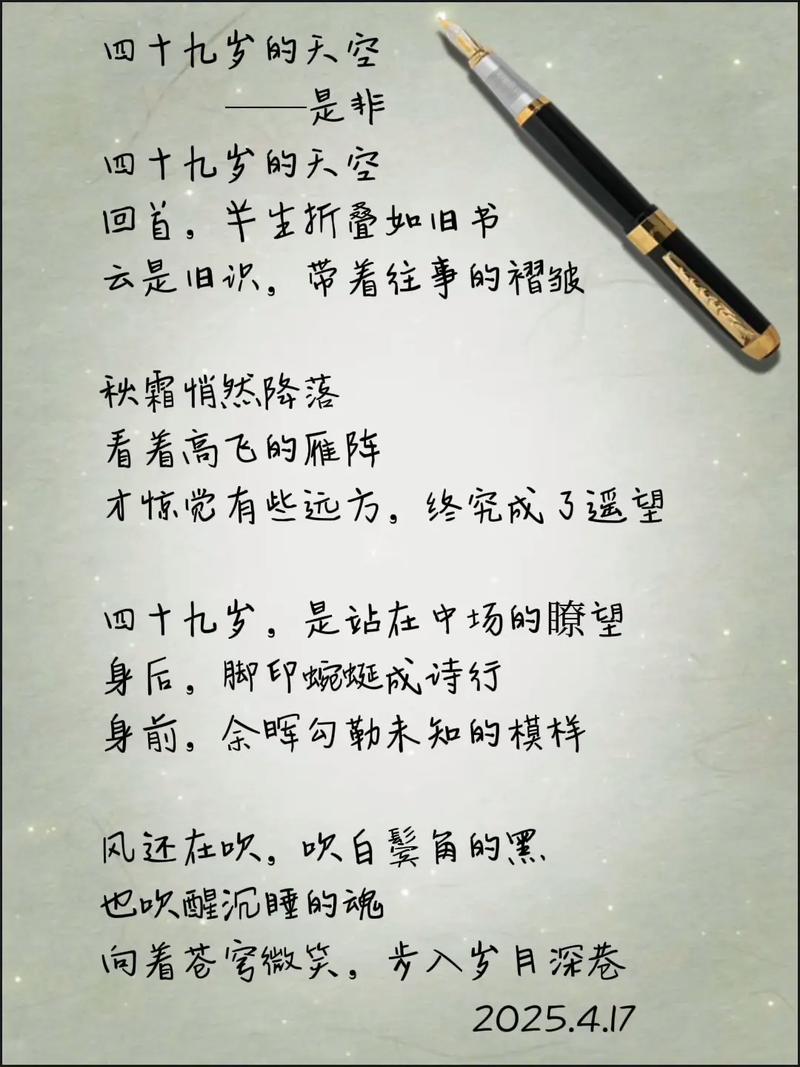 四十九岁的天空
——是非
四十九岁的天空
回首，半生折叠如旧书
云是旧识，带着往事的褶皱
秋霜悄然降落
看着高飞的雁阵
才惊觉有些远方，终究成了遥望
四十九岁，是站在中场的瞭望
身后，脚印蜿蜒成诗行
身前，余晖勾勒未知的模样
风还在吹，吹白鬓角的黑
也吹醒沉睡的魂
向着苍穹微笑，步入岁月深巷
2025.4.17